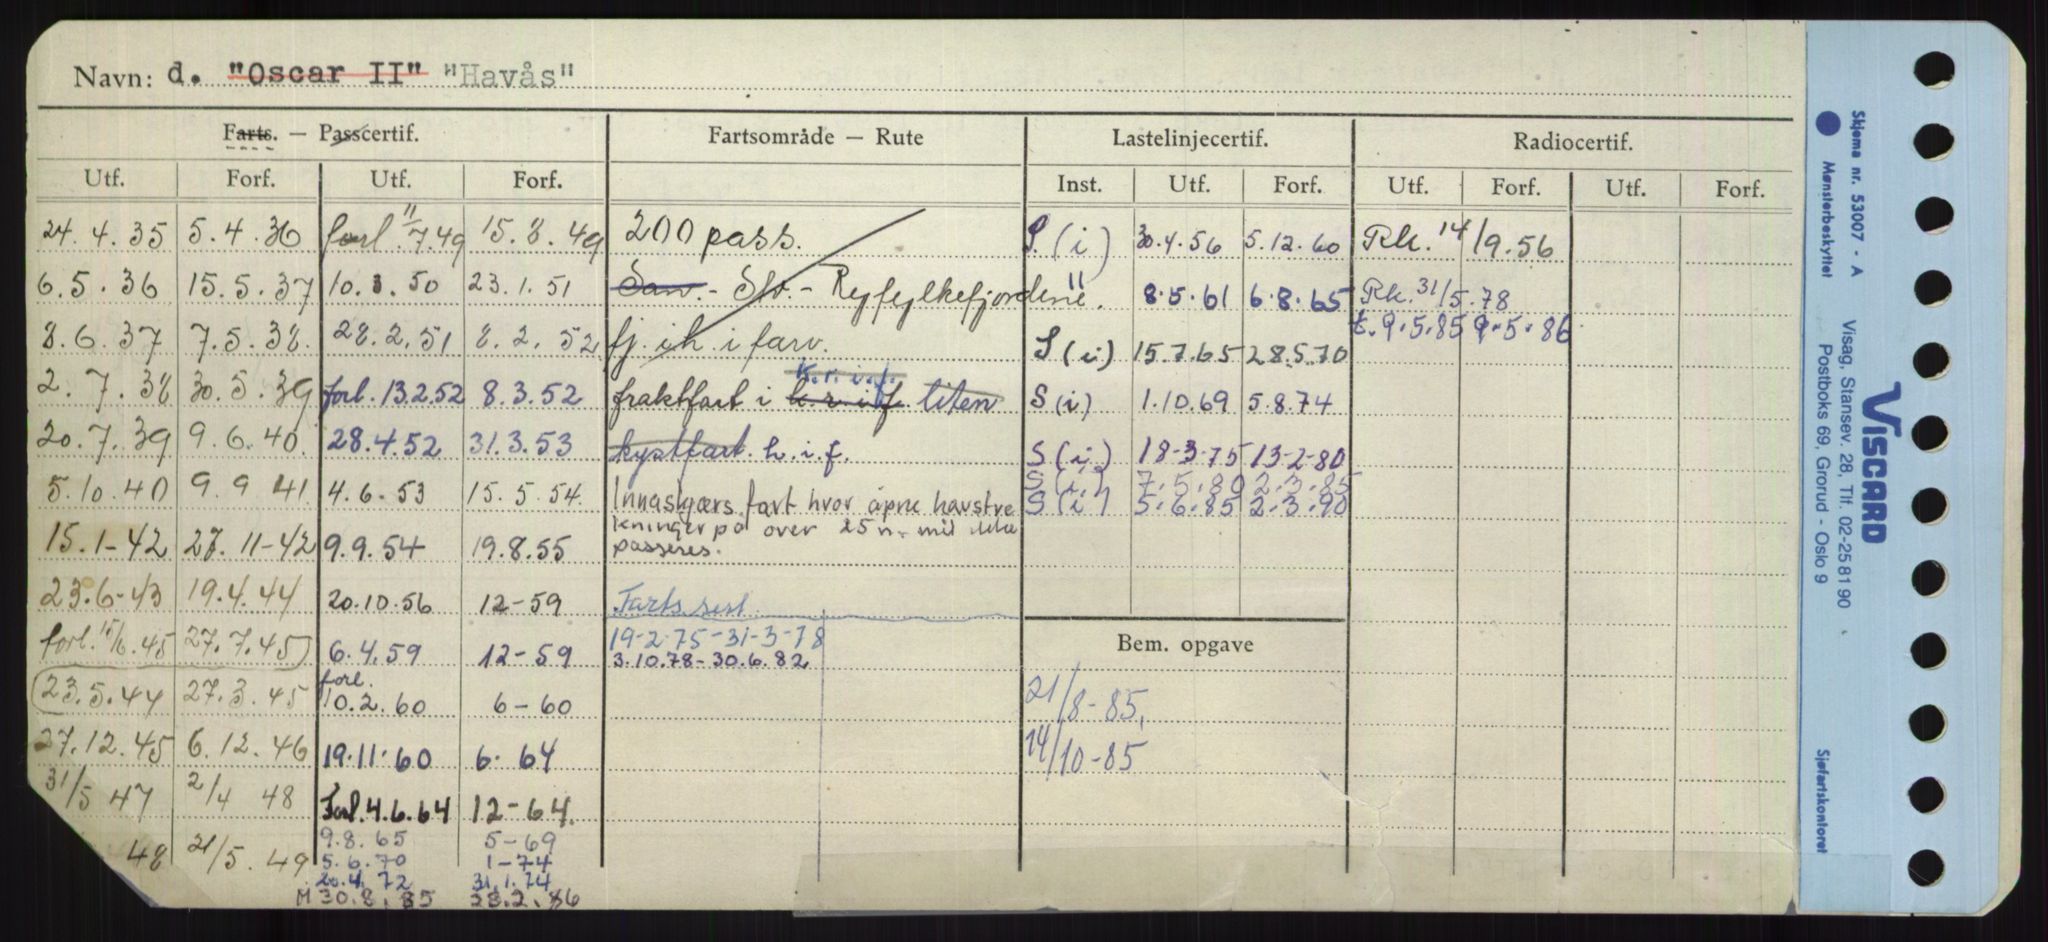 Navn: d. "Oscar II" "Havås"
Farts. — Passcertif.
Fartsområde — Rute
Lastelinjecertif.
Radiocertif.
Utf. Forf. Utf. Forf. Inst. Utf. Forf. Utf. Forf. Utf. Forf.
24.4.35 5.4.36 forl. 11/7.49 15.8.49 200 pass. S.(i) 30.4.56 5.12.60 Rk. 14/9.56
6.5.36 15.5.37 10.3.50 23.1.51 Sav.- Stv.- Ryfylkefjordene. " 8.5.61 6.8.65 Rk. 31/5.78
t. 9.5.85 9.5.86
8.6.37 7.5.38. 28.2.51 8.2.52 fj. i h. i farv. S(i) 15.7.65 28.5.70
K.r.i.f.
2.7.38 30.5.39 forl. 13.2.52 8.3.52 fraktfart i k.r.i.f liten S(i) 1.10.69 5.8.74
20.7.39 9.6.40. 28.4.52 31.3.53 kystfart. h.i.f. S(i) 18-3-75 13-2-80
S(i) 7.5.80 2.3.85
5.10.40 9.9.41 4.6.53 15.5.54. Innaskjærs fart hvor åpne havstre S(i) 5.6.85 2.3.90
kninger på over 25 n.mil ikke
15.1-42 27.11-42 9.9.54 19.8.55 passeres.
23.6-43 19.4.44 20.10.56 12-59 Farts sert.
forl. 15/6.45 27.7.45 6.4.59 12-59 19-2-75-31-3-78
3.10.78-30.6.82
Bem. opgave
23.5.44 27.3.45 forl. 10.2.60 6-60 21/8-85,
27.12.45 6.12.46 19.11.60 6.64 14/10-85
31/5 47 2/4 48 Forl. 4.6.64 12-64.
9.8.65 5-69
48 21/5.49 5.6.70 1-74
20.4.72 31.1.74
M 30.8.85 28.2.86
Skjema nr. 53007 - A
Mønsterbeskyttet
Visag, Stansev. 28, Tlf. 02-25 81 90
Postboks 69, Grorud - Oslo 9
VISCARD
Sjøfartskontoret